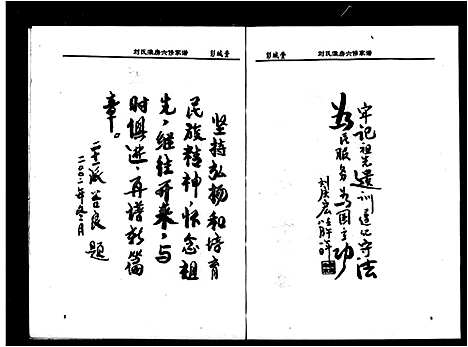 彭城堂
刘氏淮房六修家谱
牢记祖先遗训遵纪守法
为民服务为国立功
刘庆宏
刘氏淮房六修家谱
彭城堂
坚持弘扬和培育
民族精神，怀念祖
先，继往开来，与
时俱进，再谱新篇
章。
善良 题
二〇〇二年冬月